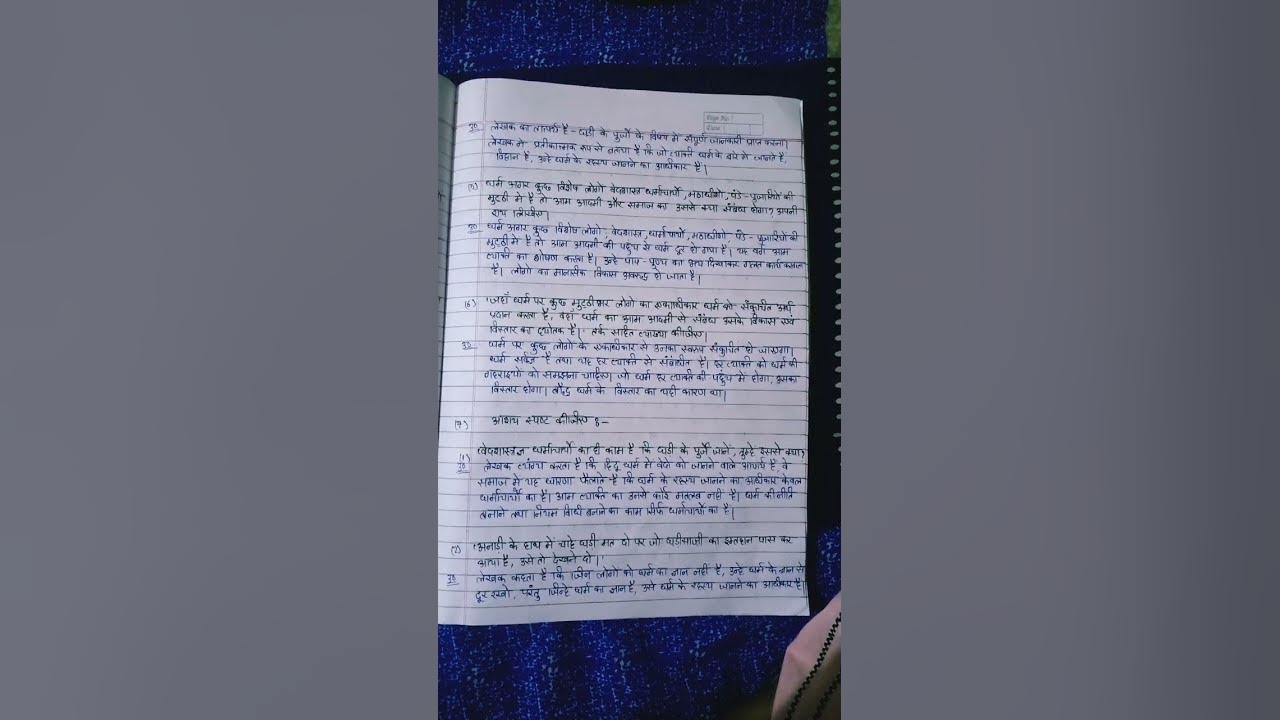 Page No.
Date
उ० लेखक का तात्पर्य है - घड़ी के पुर्जों के विषय में संपूर्ण जानकारी प्राप्त करना।
लेखक ने प्रतीकात्मक रूप से बताया है कि जो व्यक्ति धर्म के बारे में जानते हैं,
विद्वान हैं, उन्हें धर्म के रहस्य जानने का अधिकार है।
(5) धर्म अगर कुछ विशेष लोगों वेदशास्त्र धर्माचार्यों, मठाधीशों, पंडे-पुजारियों की
मुट्ठी में है तो आम आदमी और समाज का उससे क्या संबंध होगा? अपनी
राय लिखिए।
उ० धर्म अगर कुछ विशेष लोगों, वेदशास्त्र, धर्माचार्यों, मठाधीशों, पंडे - पुजारियों की
मुट्ठी में है तो आम आदमी की पहुँच से धर्म दूर हो गया है। यह वर्ग आम
व्यक्ति का शोषण करता है। उन्हें पाप-पुण्य का भय दिखाकर गलत कार्य करवाता
है। लोगों का मानसिक विकास अवरुद्ध हो जाता है।
(6) 'जहाँ धर्म पर कुछ मुट्ठीभर लोगों का एकाधिकार धर्म को संकुचित अर्थ
प्रदान करता है, वहाँ धर्म का आम आदमी से संबंध उसके विकास एवं
विस्तार का द्योतक है।' तर्क सहित व्याख्या कीजिए।
उ० धर्म पर कुछ लोगों के एकाधिकार से उनका स्वरूप संकुचित हो जाएगा।
धर्म सर्वज्ञ है तथा यह हर व्यक्ति से संबंधित है। हर व्यक्ति को धर्म की
गहराइयों को समझना चाहिए। जो धर्म हर व्यक्ति की पहुँच में होगा, उसका
विस्तार होगा। बौद्ध धर्म के विस्तार का यही कारण था।
(7) आशय स्पष्ट कीजिए :-
(1) 'वेदशास्त्रज्ञ धर्माचार्यों का ही काम है कि घड़ी के पुर्जे जानें, तुम्हें इससे क्या?'
उ० लेखक व्यंग्य करता है कि हिंदू धर्म में वेदों को जानने वाले आचार्य हैं, वे
समाज में यह धारणा फैलाते हैं कि धर्म के रहस्य जानने का अधिकार केवल
धर्माचार्यों का है। आम व्यक्ति का उनसे कोई मतलब नहीं है। धर्म की नीति
बनाने तथा नियम विधि बनाने का काम सिर्फ धर्माचार्यों का है।
(2) 'अनाड़ी के हाथ में चाहे घड़ी मत दो पर जो घड़ीसाजी का इम्तहान पास कर
आया है, उसे तो देखने दो।'
उ० लेखक कहता है कि जिन लोगों को धर्म का ज्ञान नहीं है, उन्हें धर्म के ज्ञान से
दूर रखो, परंतु जिन्हें धर्म का ज्ञान है, उसे धर्म के रहस्य जानने का अधिकार है।